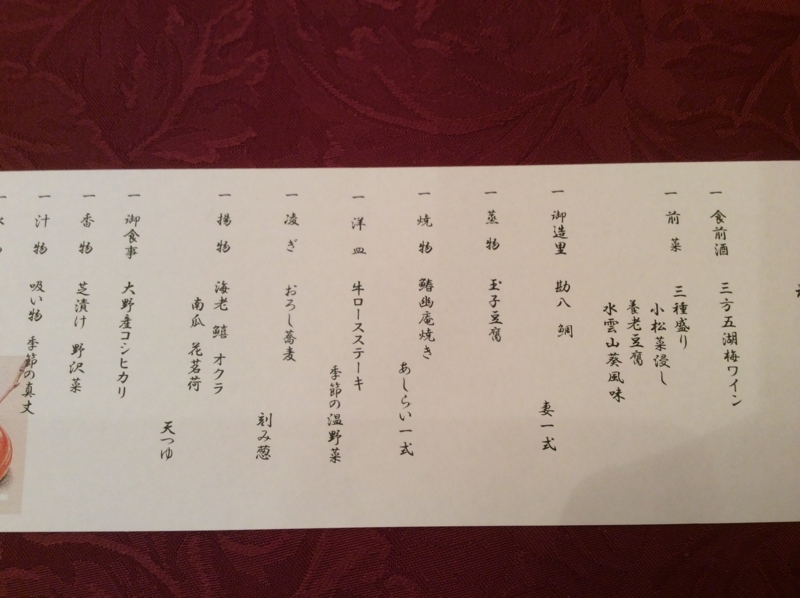 一 食前酒 三方五湖梅ワイン
一 前菜 三種盛り
小松菜浸し
養老豆腐
水雲山葵風味
一 御造里 勘八 鯛
妻一式
一 蒸物 玉子豆腐
一 焼物 鰆幽庵焼き
あしらい一式
一 洋皿 牛ロースステーキ
季節の温野菜
一 凌ぎ おろし蕎麦
刻み葱
一 揚物 海老 鱚 オクラ
南瓜 花茗荷
天つゆ
一 御食事 大野産コシヒカリ
一 香物 芝漬け 野沢菜
一 汁物 吸い物 季節の真丈